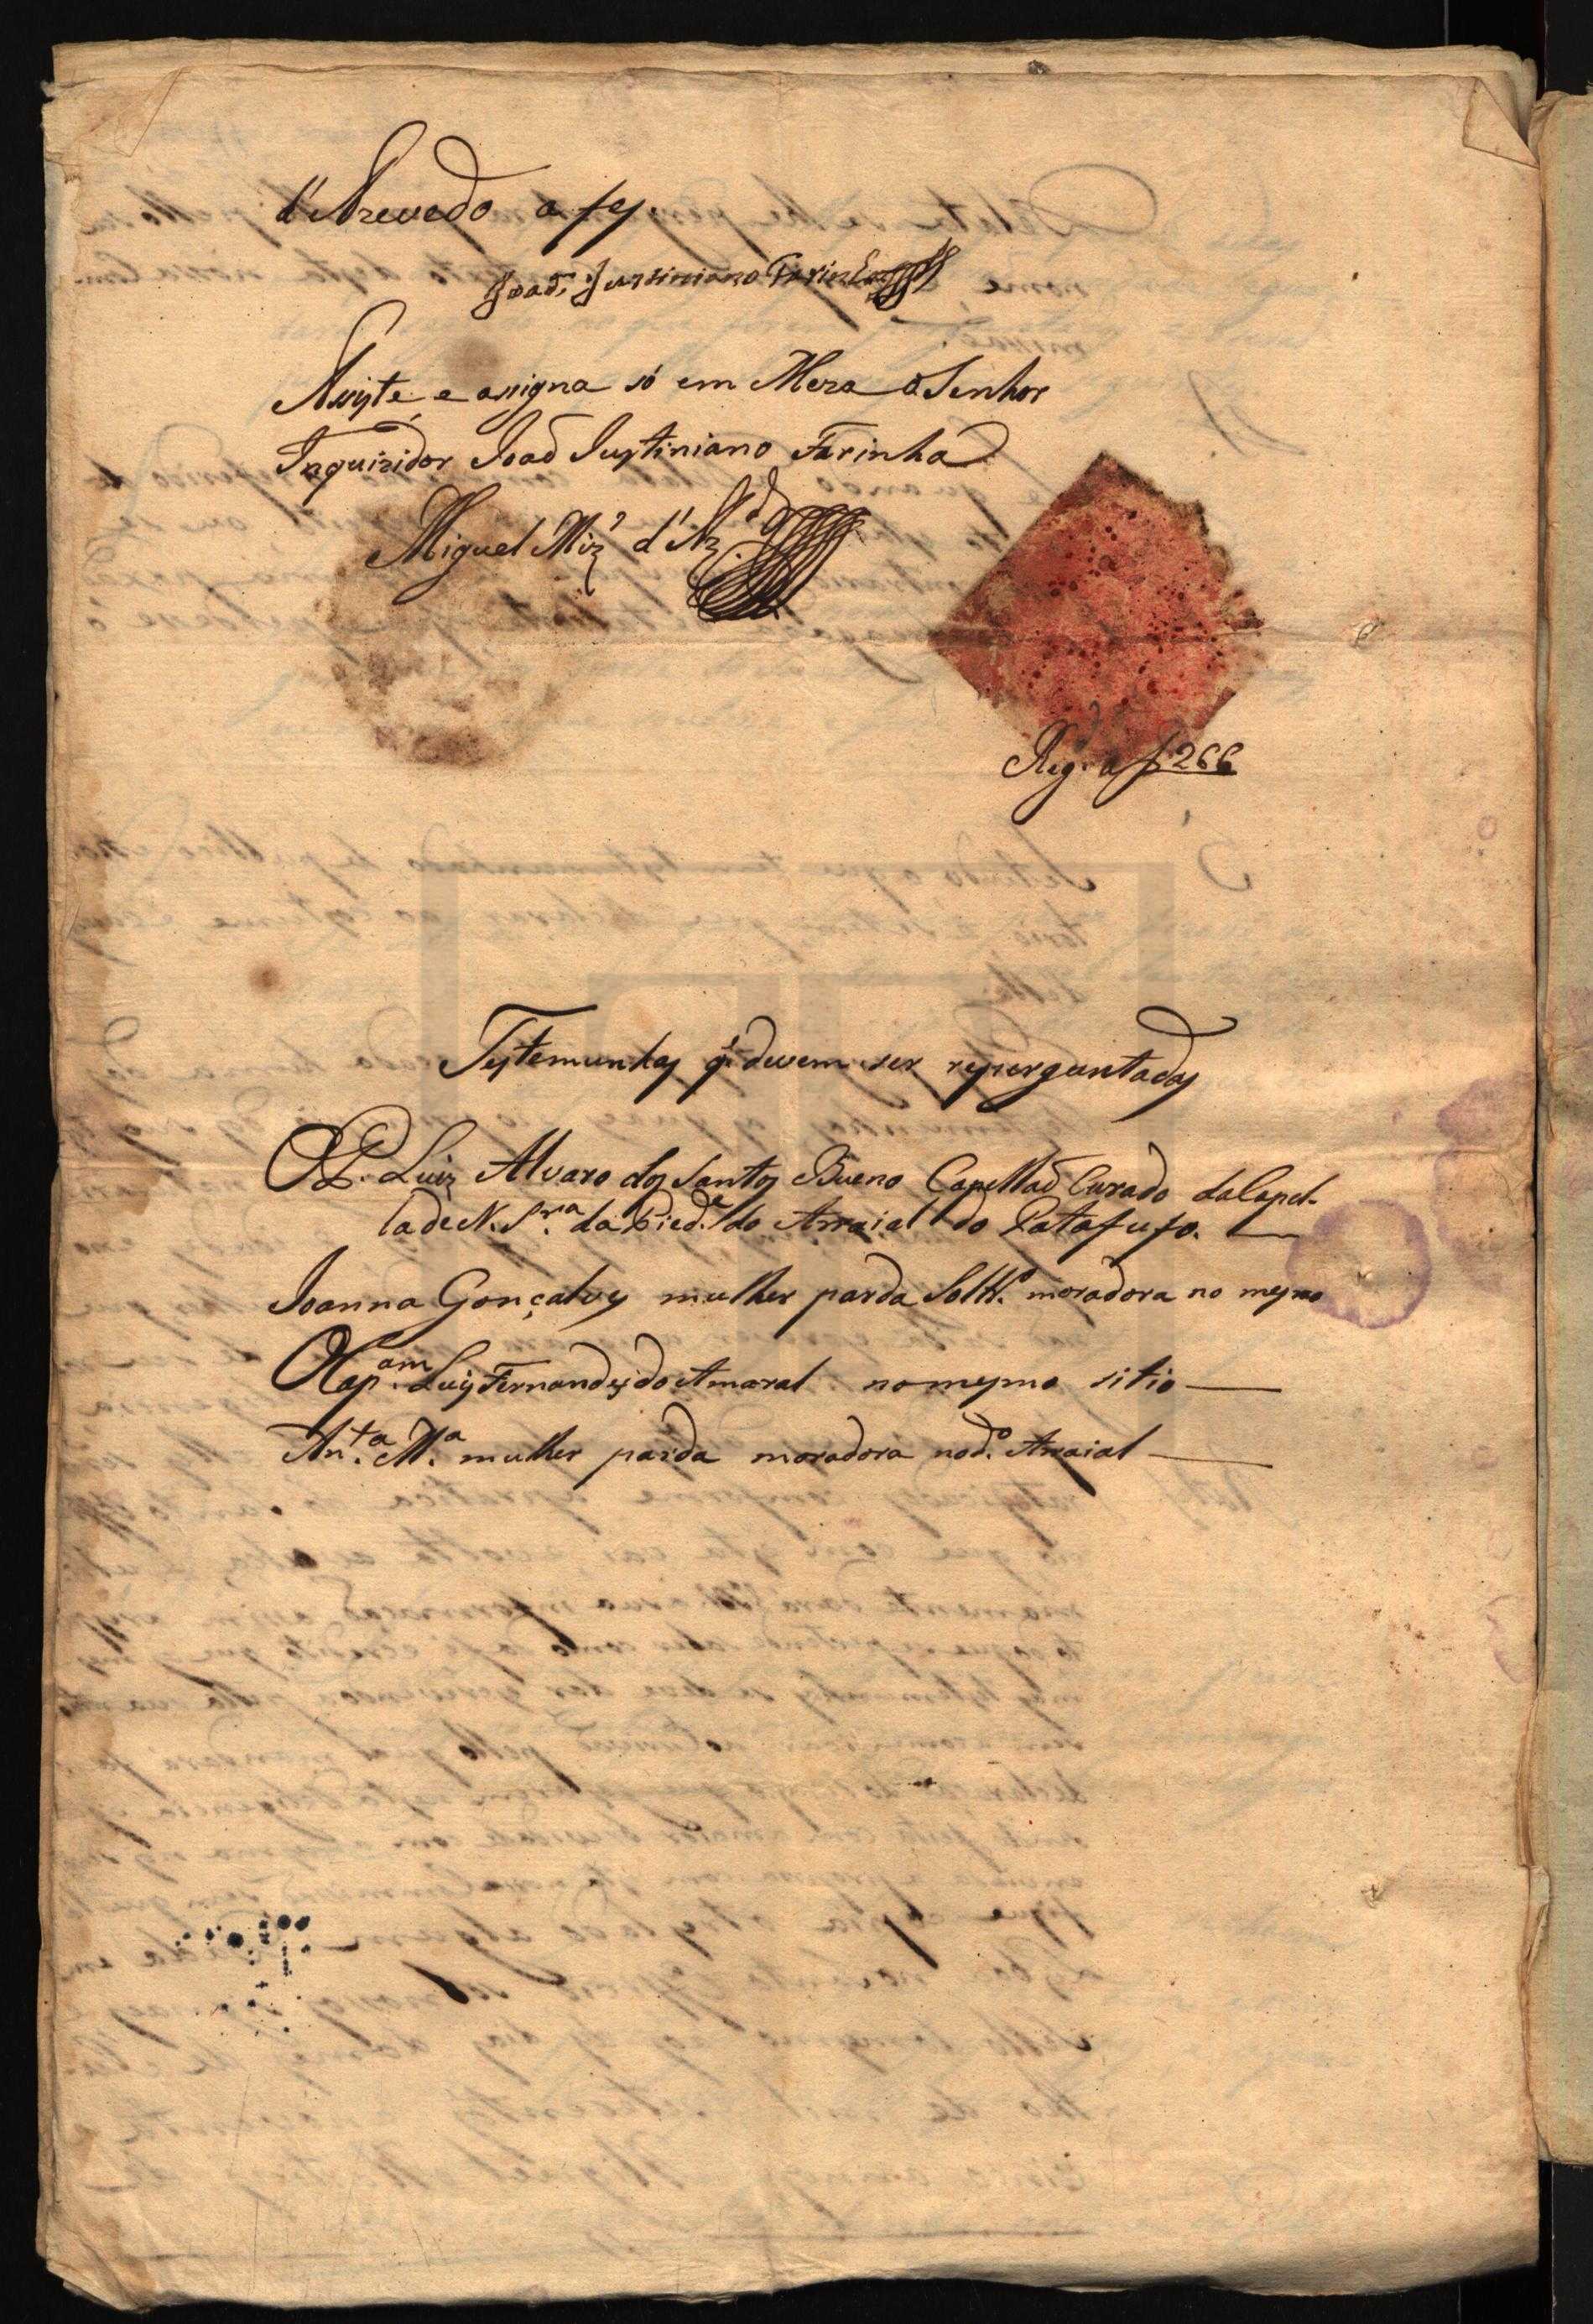 d'Azevedo a fes.
Joaõ Justiniano Farinha
Asiste e asigna só em Meza o Senhor
Inquizidor Joaõ Justiniano Farinha
Miguel Miz' d'Az.do
Reg.do a f 266
Testemunhas q' devem ser reperguntadas
O P. Luiz Alvaro dos Santos Bueno Capellaõ Curado da Capel-
la de N. Snr.a da Pied.e do Arraial do Patafufo.
Joanna Gonçalves mulher parda Solt.ra moradora no mesmo
O Cap.am Luis Fernandes do Amaral no mesmo sitio
An.ta M.a mulher parda moradora no d.o Arraial